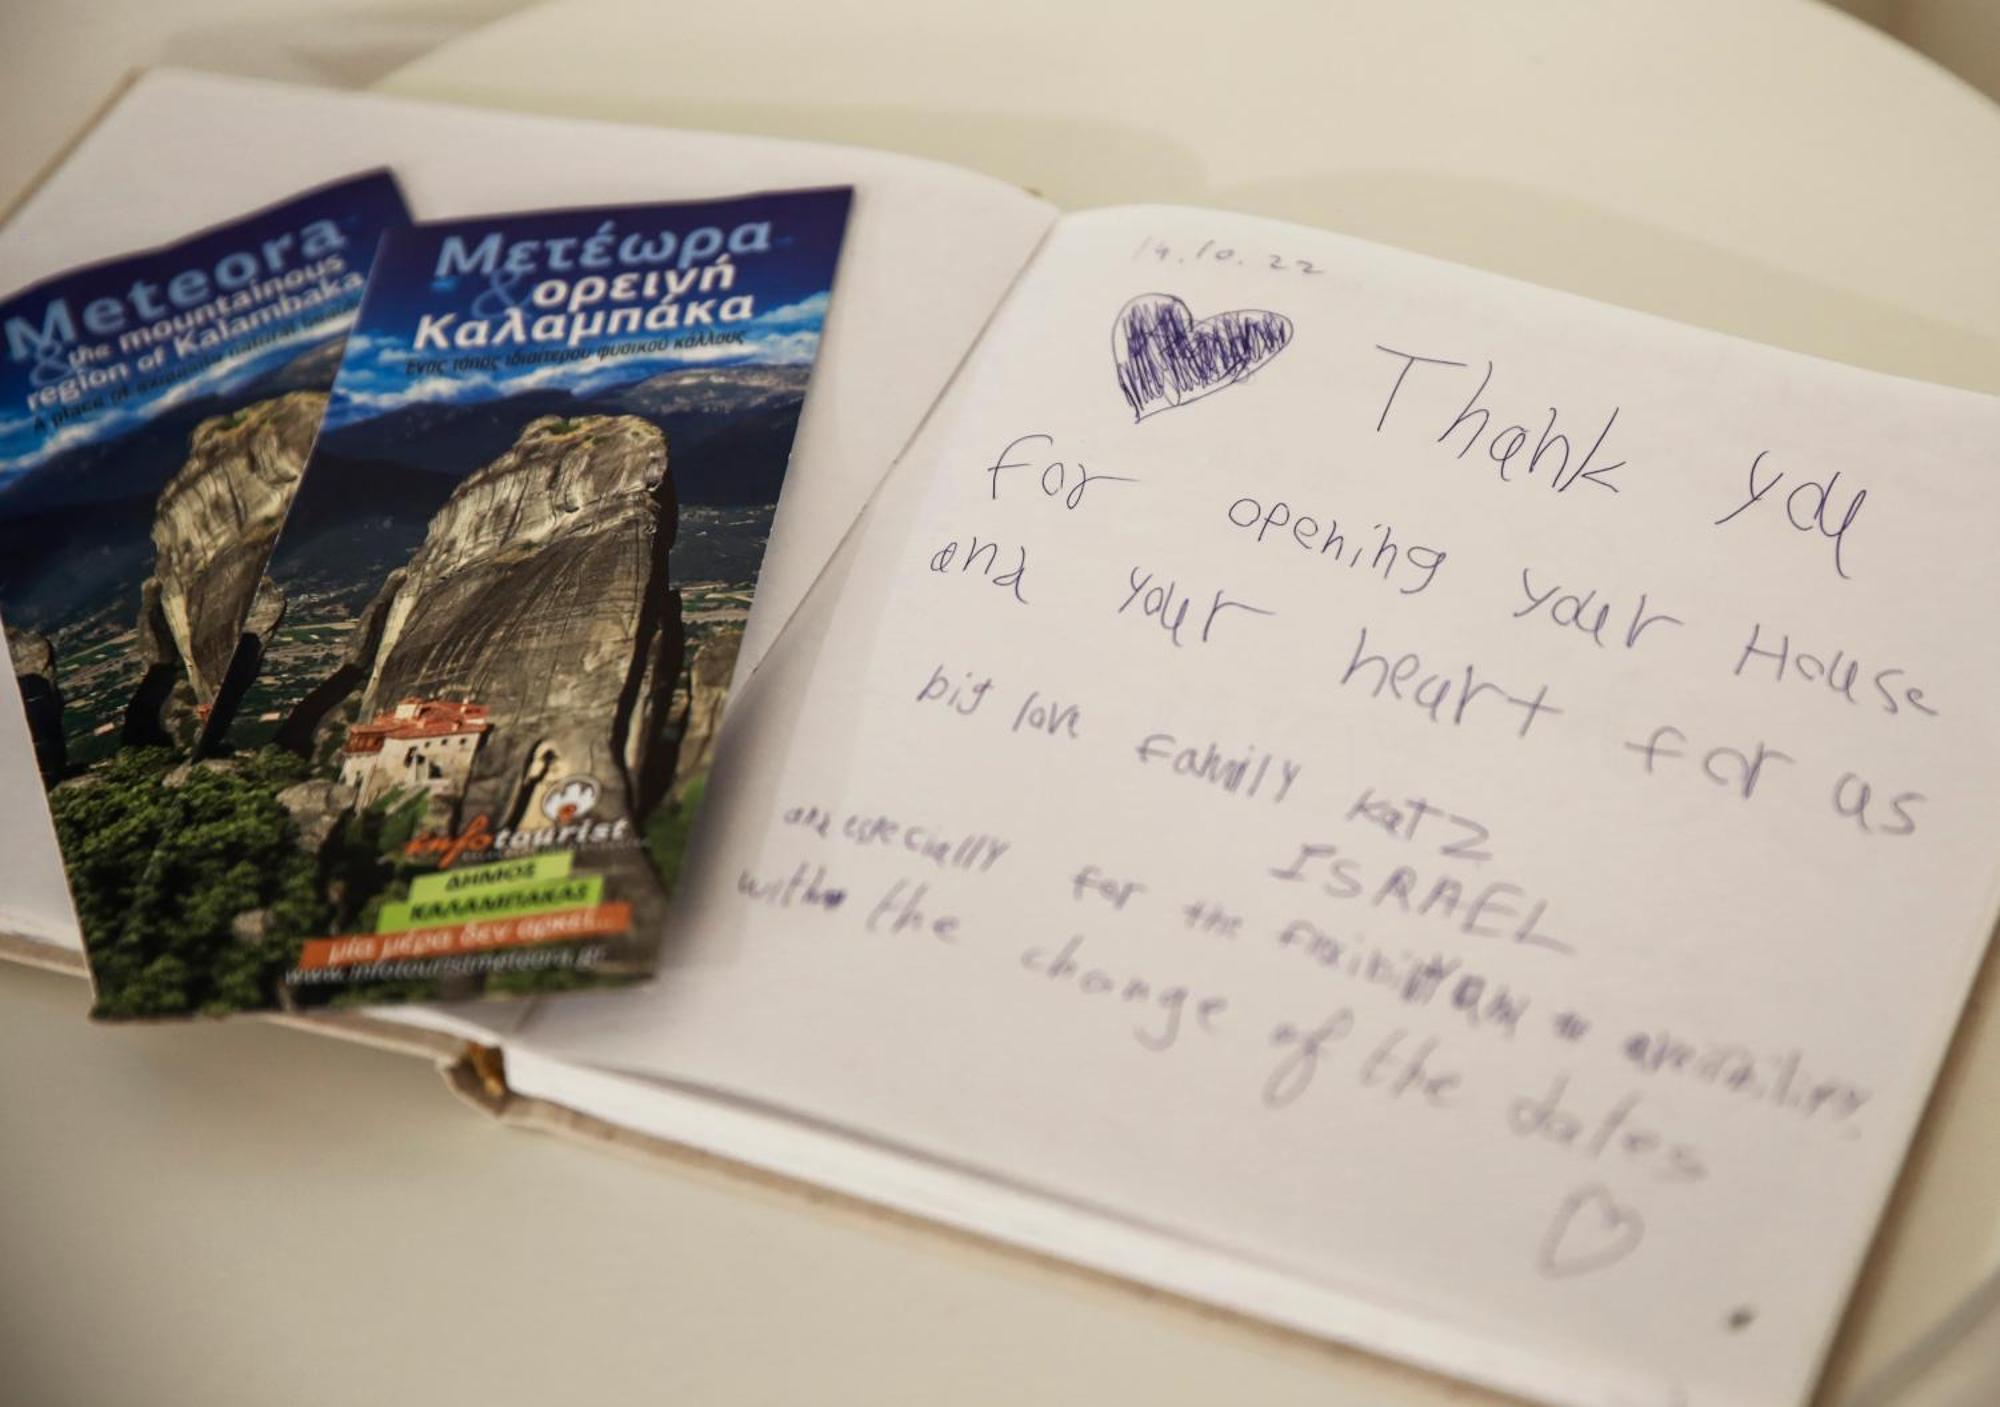 Meteora
& the mountainous
region of Kalambaka
A place of natural
Μετέωρα
& ορεινή
Καλαμπάκα
ένας τόπος ιδιαίτερου φυσικού κάλλους
infotourist
ΔΗΜΟΣ
ΚΑΛΑΜΠΑΚΑΣ
μία μέρα δεν αρκεί...
www.infotouristmeteora.gr
14.10.22
Thank you
For opening your House
and your heart for us
big love Family Katz
ISRAEL
and especially for the
with the change of the dates